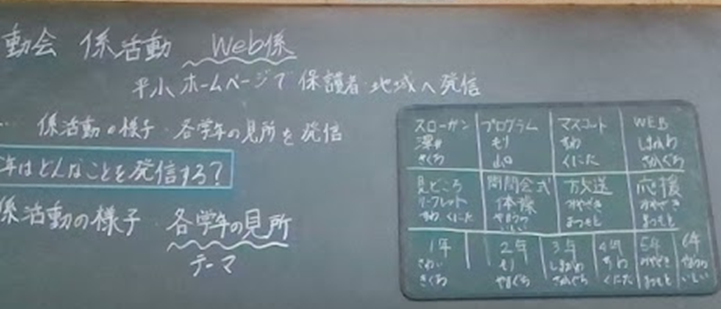 動会 係活動 Web係
平小ホームページで保護者・地域へ発信
係活動の様子・各学年の見所を発信
年はどんなことを発信する?
係活動の様子・各学年の見所
テーマ
スローガン プログラム マスコット WEB
澤井 もり ちわ しおかわ
きくち 山口 くにた さかぐち
見どころ 開閉会式 放送 応援
リーフレット 体操 みやざき みやざき
ちわ くにた やまつつ まつもと まつもと
いしい
1年 2年 3年 4年 5年 6年
さわい もり しおかわ ちわ みやざき やまつつ
きくち やまぐち さかぐち くにた まつもと いしい